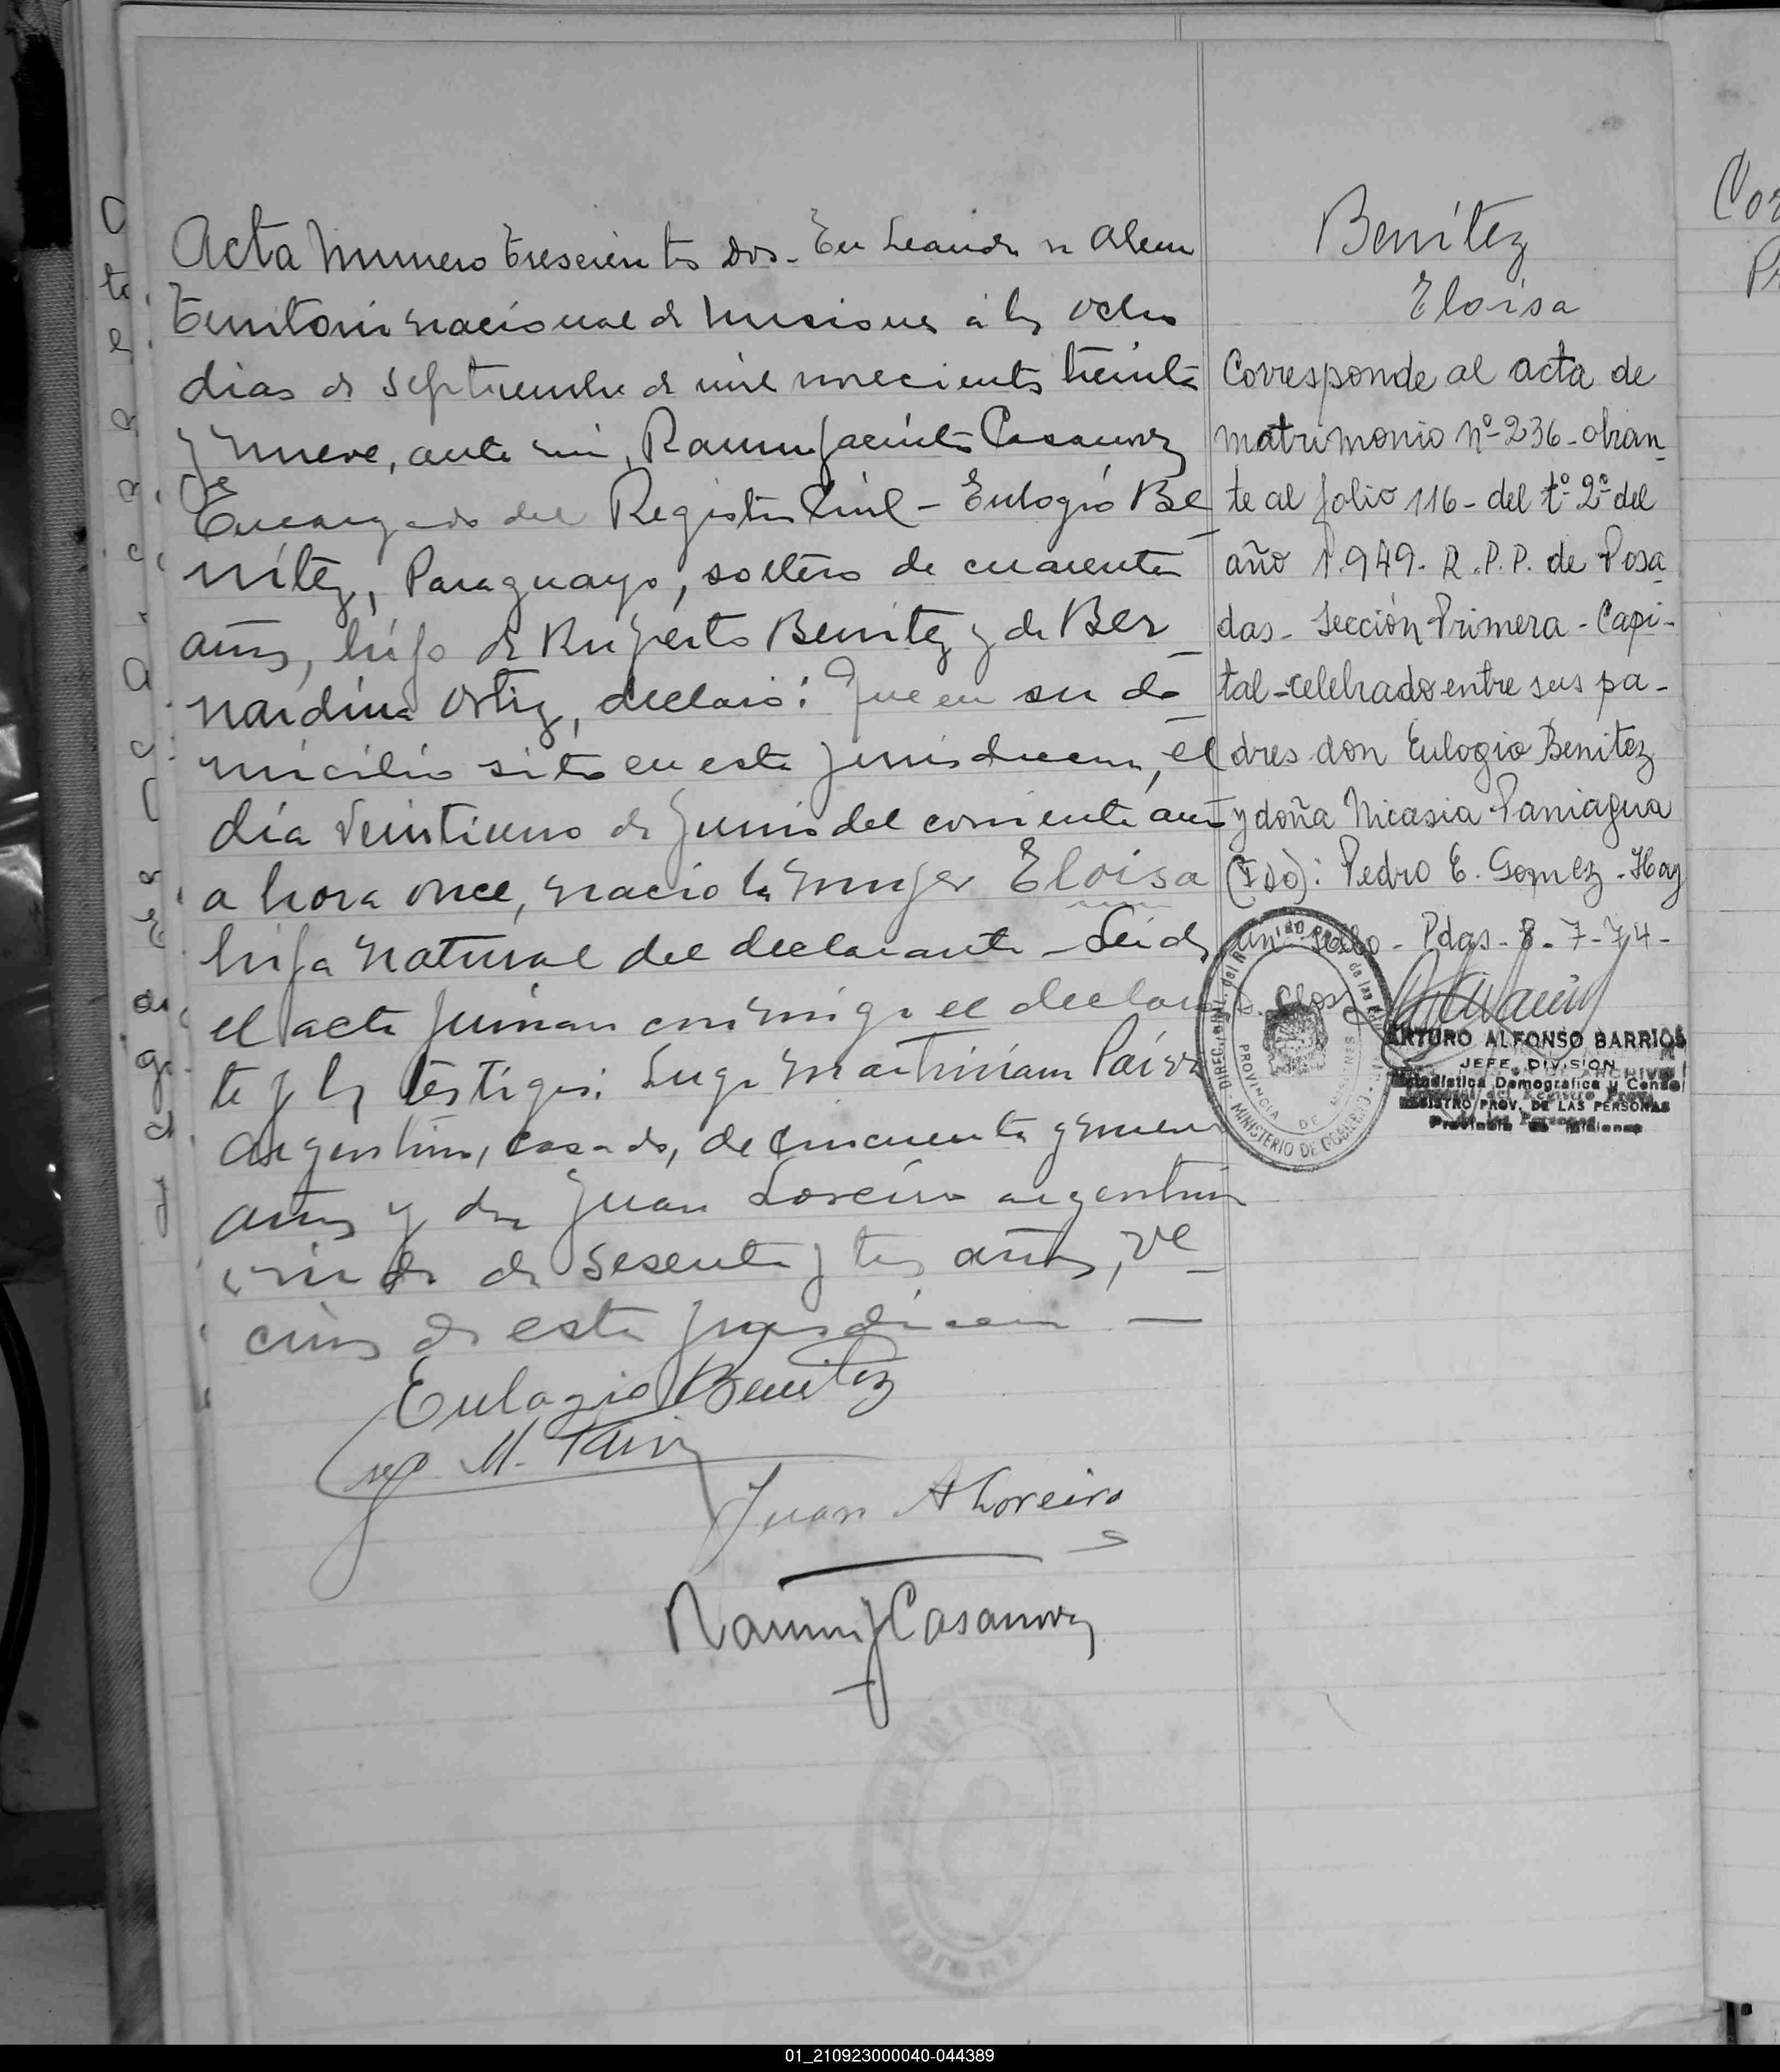 Acta Numero trescientos dos. En Leandro N Alem
territorio nacional de Misiones a los ocho
dias de septiembre de mil novecientos treinta
y nueve, ante mi, Ramon Jacinto Casanova
Jefe
Encargado del Registro Civil - Eulogio Be
nítez, Paraguayo, soltero de cuarenta
años, hijo de Ruperto Benitez y de Ber
nardina Ortiz, declaró: Que en su do
micilio sito en esta jurisdiccion, el
día veintiuno de junio del corriente año
a hora once, nacio la mujer Eloisa
hija natural del declarante - Leida
el acta firman conmigo el declaran
te y los testigos: Lugo Martiniano Paiva
argentino, casado, de cincuenta y nueve
años y don Juan Loreiro argentino
viudo de sesenta y tres años, ve
cinos de esta jurisdiccion -
Eulogio Benitez
M. Paiva
Juan A Loreiro
Ramon J Casanova
Benítez
Eloisa
Corresponde al acta de
matrimonio nº 236 - obran
te al folio 116 - del tº 2º del
año 1.949. R.P.P. de Posa
das - Sección Primera - Capi-
tal - celebrado entre sus pa-
dres don Eulogio Benitez
y doña Nicasia Paniagua
(Fdo): Pedro E. Gomez - Hay
un sello - Pdas - 8 - 7 - 74 -
PROVINCIA DE MISIONES
MINISTERIO DE GOBIERNO
ARTURO ALFONSO BARRIOS
JEFE DIVISION
Estadistica Demografica y Censo
REGISTRO PROV. DE LAS PERSONAS
Provincia de Misiones
Cor
01_210923000040-044389